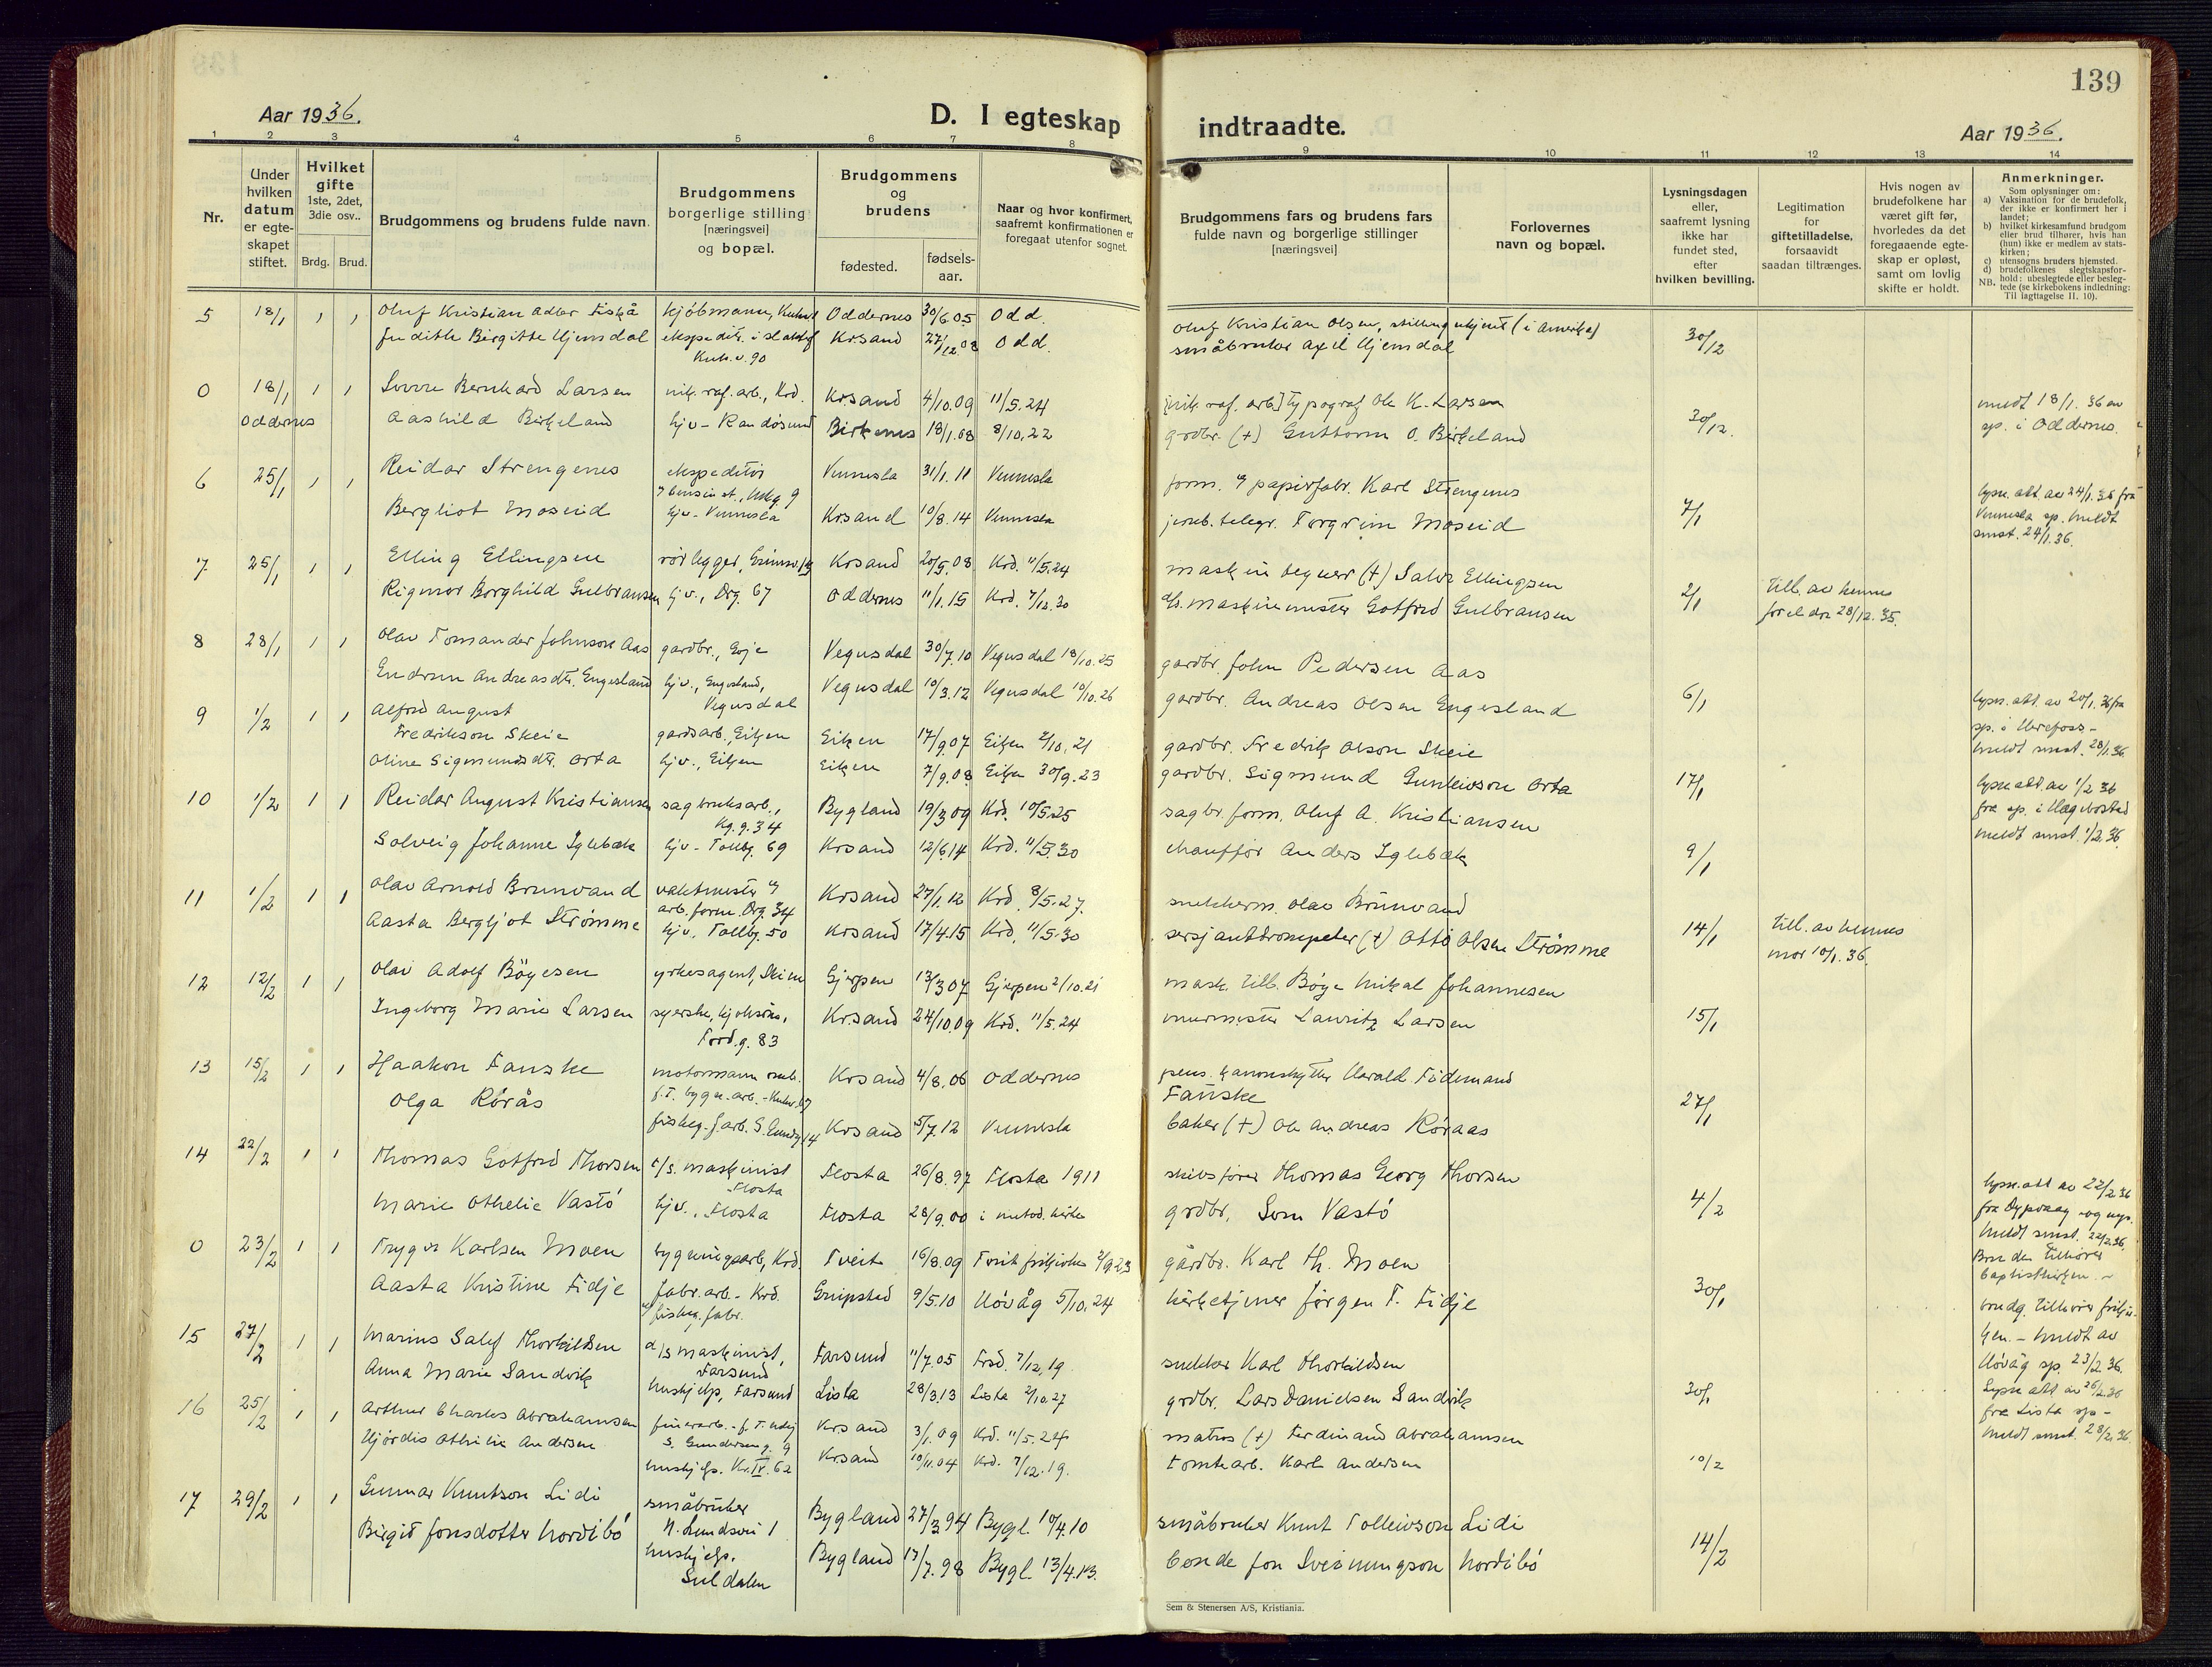 139
Aar 1936.
D. I egteskap indtraadte.
Aar 1936.
1 2 3 4 5 6 7 8 9 10 11 12 13 14
Nr.
Under hvilken datum er egteskapet stiftet.
Hvilket gifte 1ste, 2det, 3die osv..
Brdg. Brud.
Brudgommens og brudens fulde navn.
Brudgommens borgerlige stilling [næringsvei] og bopæl.
Brudgommens og brudens
fødested.
fødselsaar.
Naar og hvor konfirmert, saafremt konfirmationen er foregaat utenfor sognet.
Brudgommens fars og brudens fars fulde navn og borgerlige stillinger [næringsvei]
Forlovernes navn og bopæl.
Lysningsdagen eller, saafremt lysning ikke har fundet sted, efter hvilken bevilling.
Legitimation for giftetilladelse, forsaavidt saadan tiltrænges.
Hvis nogen av brudefolkene har været gift før, hvorledes da det foregaaende egteskap er opløst, samt om lovlig skifte er holdt.
Anmerkninger.
Som oplysninger om:
a) Vaksination for de brudefolk, der ikke er konfirmert her i landet;
b) hvilket kirkesamfund brudgom eller brud tilhører, hvis han (hun) ikke er medlem av statskirken;
c) utensogns bruders hjemsted.
d) brudefolkenes slegtskapsforhold: ubeslegtede eller beslegtede (se kirkebokens indledning: Til Iagttagelse II. 10).
NB.
5 18/1 1 1 Oluf Kristian Adler Fiskå kjøbmann, Oddernes 30/6.05 Odd. Oluf Kristian Olsen, stilling ukjent (i Amerika) 30/12
Judith Birgitte Hjemdal Krsand 27/12 08 Odd. småbruker Axel Hjemdal
0 18/1 1 1 Sverre Bernhard Larsen nik. raf. arb., Krd. Krsand 4/10.09 11/5.24 [nik. raf. arb] typograf Ole K. Larsen 30/12. meldt 18/1.36 av
Oddernes Aashild Birkeland hjv - Randøsund Birkenes 18/1.08 8/10.22 grdbr. (+) Guttorm O. Birkeland sp. i Oddernes.
6 25/1 1 1 Reidar Strengenes ekspeditør Vennesla 31/1.11 Vennesla form. v papirfabr. Karl Strengenes 7/1 lysn. att. av 24/1.36 fra
Bergliot Moseid hjv - Vennesla Krsand 10/8.14 Vennesla jernb. telegr. Torgrim Moseid Vennesla sp. meldt
smst. 24/1.36.
7 25/1 1 1 Elling Ellingsen rørlegger, Krsand 20/5.08 Krd. 11/5.24 maskin tegner (+) Salve Ellingsen 2/1 till. av hennes
Rigmor Borghild Gulbransen hjv., Drg. 67 Oddernes 11/1.15 Krd. 7/12.30 maskinmester Gotfred Gulbransen foreldre 28/12.35.
8 28/1 1 1 Olav Tomander Johnson Aas gardbr., Evje Vegusdal 30/7.10 Vegusdal 18/10.25 gardbr. John Pedersen Aas 6/1
Gudrun Andreasdtr. Engesland hjv., Engesland, Vegusdal Vegusdal 10/3.12 Vegusdal 10/10.26 gardbr. Andreas Olsen Engesland lysn. att. av 20/1.36 fra
sp. i Herefoss -
meldt smst. 28/1.36
9 1/2 1 1 Alfred August Fredrikson Skeie gardsarb., Eiken Eiken 17/9.07 Eiken 2/10.21 gardbr. Fredrik Olson Skeie 17/1
Oline Sigmundsdtr. Orta hjv., Eiken Eiken 7/9.08 Eiken 30/9.23 gardbr. Sigmund Gunleivson Orta lysn. att. av 1/2 36
fra sp. i Hægebostad
meldt smst. 1/2.36.
10 1/2 1 1 Reidar August Kristiansen sagbruksarb., Kg. g. 34 Bygland 19/3.09 Krd. 10/5.25 sagbr. form. Oluf A. Kristiansen 9/1
Solveig Johanne Iglebæk hjv - Tollbg. 69 Krsand 12/6.14 Krd. 11/5.30 chauffør Anders Iglebæk
11 1/2 1 1 Olav Arnold Brunvand vaktmester v arb. foren. Drg. 34 Krsand 27/1.12 Krd. 8/5.27. snekkerm. Olav Brunvand 14/1 till. av hennes
Aasta Bergljot Strømme hjv. Tollbg. 50 Krsand 17/4.15 Krd. 11/5.30 sersjanttrompeter (+) Otto Olsen Strømme mor 10/1.36.
12 12/2 1 1 Olav Adolf Böyesen yrkesagent, Skien Gjerpen 13/3 07 Gjerpen 2/10.21 mask. till. Böye Mikal Johannesen 15/1
Ingeborg Marie Larsen syerske, Tord. g. 83 Krsand 24/10.09 Krd. 11/5.24 murmester Lauritz Larsen
13 15/2 1 1 Haakon Fanske motormann Krsand 4/8.06 Oddernes pens. kanonskytter Harald Fidemand Fanske 27/1
Olga Rørås Krsand 5/7.12 Vennesla baker (+) Ole Andreas Røraas
14 22/2 1 1 Thomas Gotfred Thorsen maskinist Flosta Flosta 26/8.97 Flosta 1911 skibsfører Thomas Georg Thorsen 4/2 lysn. att av 22/2 36
Marie Othelie Vastö hjv., Flosta Flosta 28/9.00 i metod. kirke grdbr. Sorn Vastö fra Dypvaag
meldt smst. 22/2.36.
0 23/2 1 1 Trygve Karlsen Moen bygningsarb, Krd. Tveit 16/8.09 Tveit frikirke 2/9.23 gårdbr. Karl Th. Moen 30/1 Bruden tilhører
Aasta Kristine Fidje fabr. arb. - Krd. Grupsted 9/5.10 Høvåg 5/10.24 kirketjener Jørgen T. Fidje baptistkirken. -
brudg. tilhører frikirken. - meldt av
Høvåg sp. 23/2 36.
15 27/2 1 1 Marius Salef Thorkildsen d/s maskinist, Farsund Farsund 11/7.05 Frsd. 7/12.19 snekker Karl Thorkildsen 30/1
Anna Marie Sandvik hushjelp, Farsund Lista 28/3.13 Lista 2/10.27 grdbr. Lars Danielsen Sandvik Lysn att av 26/2.36
fra Lista sp -
meldt smst. 28/2.36.
16 25/2 1 1 Arthur Charles Abrahamsen S. Gundersens g. 9 Krsand 3/1.09 Krd. 11/5.24 matros (+) Ferdinand Abrahamsen 10/2
Hjördis Othilie Andersen hushjelp. Kr. IV. 62 Krsand 10/11.04 Krd. 7/12.19. tomtearb. Karl Andersen
17 29/2 1 1 Gunnar Knutson Lidi småbruker Bygland 27/3 94 Bygl. 10/4.10 småbruker Knut Tolleivson Lidi 14/2
Birgit Jonsdotter Nordibö hushjelp. Suldalen Bygland 17/7.98 Bygl. 13/4.13. bonde Jon Sveinungson Nordibö
Sem & Stenersen A/S, Kristiania.